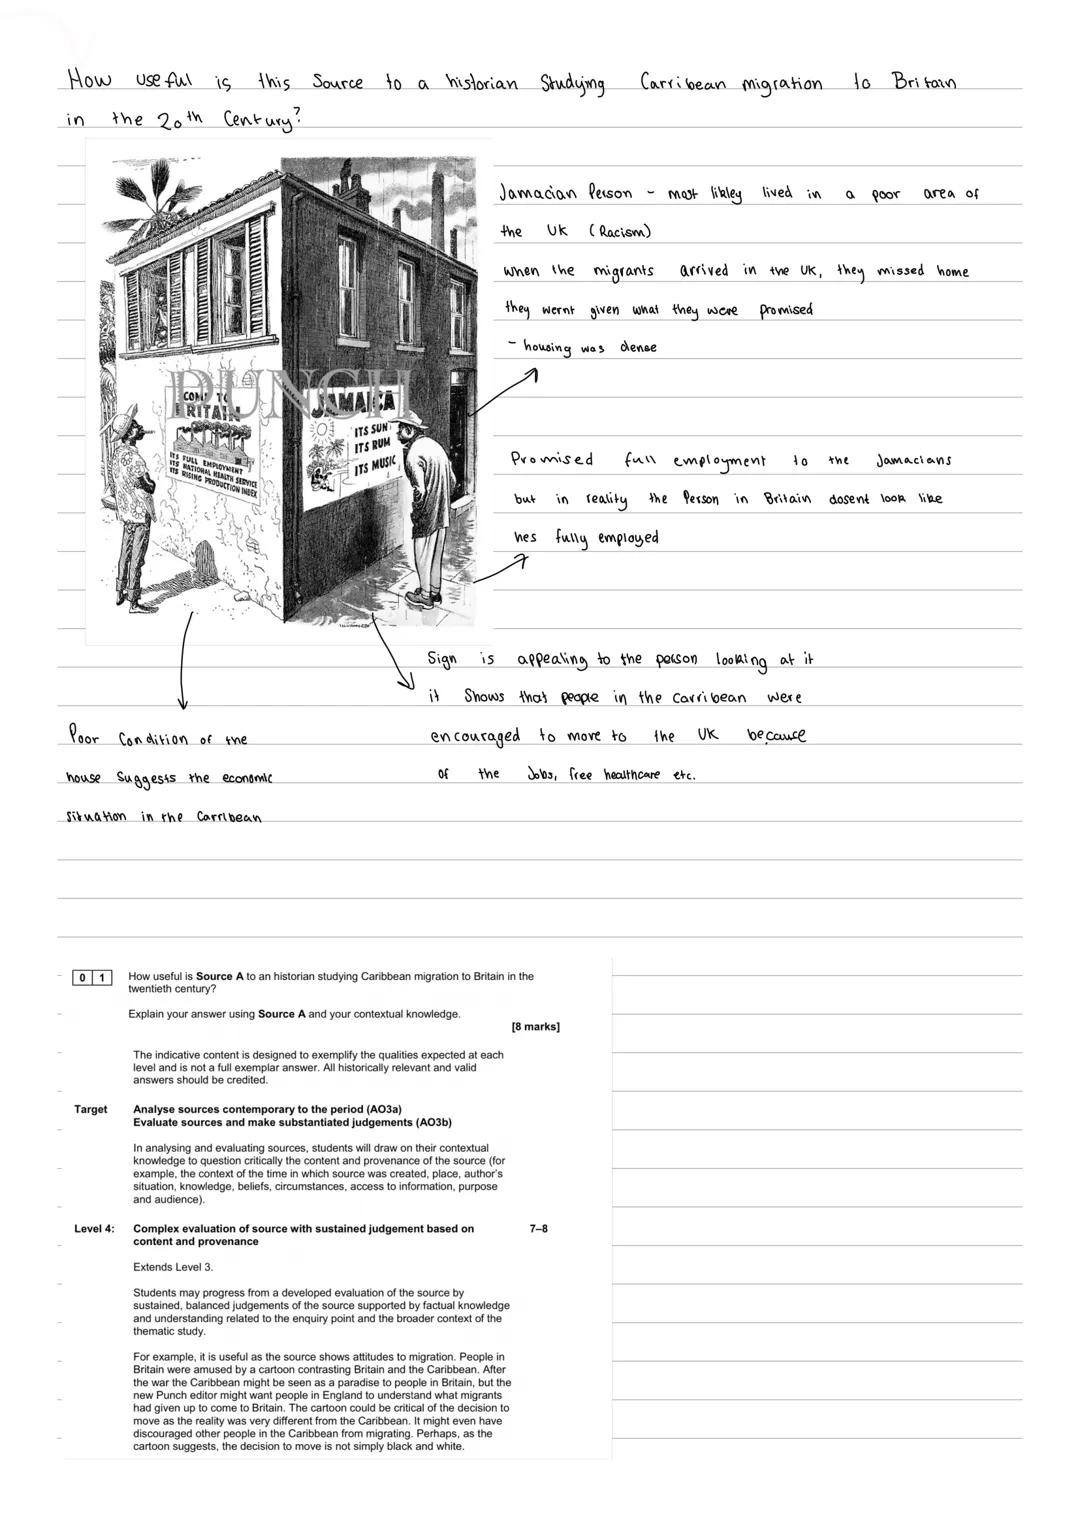 How useful is this Source to a historian Studying Carribean migration to Britain
in the 20th Century?
PUNCH
COME TO
BRITAIN
ITS FULL EMPLOYMENT
ITS NATIONAL HEALTH SERVICE
ITS RISING PRODUCTION INDEX
JAMAICA
ITS SUN
ITS RUM
ITS MUSIC
Jamacian Person - most likley lived in a poor area of
the UK (Racism)
when the migrants arrived in the UK, they missed home
they wernt given what they were promised
- housing was dense
Promised full employment to the Jamacians
but in reality the Person in Britain dosent look like
hes fully employed
Sign is appealing to the person looking at it
it Shows that people in the Carribean were
encouraged to move to the UK because
of the Jobs, free healthcare etc.
Poor Condition of the
house Suggests the economic
Situation in the Carribean
0 1 How useful is Source A to an historian studying Caribbean migration to Britain in the
twentieth century?
Explain your answer using Source A and your contextual knowledge.
[8 marks]
The indicative content is designed to exemplify the qualities expected at each
level and is not a full exemplar answer. All historically relevant and valid
answers should be credited.
Target Analyse sources contemporary to the period (AO3a)
Evaluate sources and make substantiated judgements (AO3b)
In analysing and evaluating sources, students will draw on their contextual
knowledge to question critically the content and provenance of the source (for
example, the context of the time in which source was created, place, author's
situation, knowledge, beliefs, circumstances, access to information, purpose
and audience).
Level 4: Complex evaluation of source with sustained judgement based on 7–8
content and provenance
Extends Level 3.
Students may progress from a developed evaluation of the source by
sustained, balanced judgements of the source supported by factual knowledge
and understanding related to the enquiry point and the broader context of the
thematic study.
For example, it is useful as the source shows attitudes to migration. People in
Britain were amused by a cartoon contrasting Britain and the Caribbean. After
the war the Caribbean might be seen as a paradise to people in Britain, but the
new Punch editor might want people in England to understand what migrants
had given up to come to Britain. The cartoon could be critical of the decision to
move as the reality was very different from the Caribbean. It might even have
discouraged other people in the Caribbean from migrating. Perhaps, as the
cartoon suggests, the decision to move is not simply black and white.